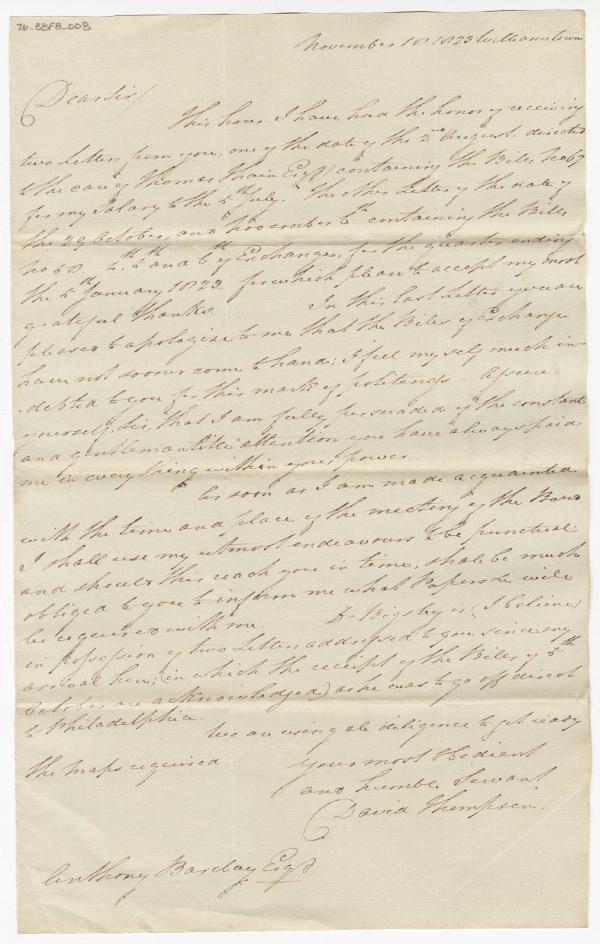 26-BBFB-008
November 18 1823 Williamstown
Dear Sir/
This hour I have had the honor of receiving
two Letters from you, one of the date of the 2nd August directed
to the care of Thomas Thain Esqr) containing the Bills No 67
for my Salary to the 5th July. The other Letter of the date of
the 29 October, and November 6th containing the Bills
No 68. 4th, 5th and 6th of Exchange, for the quarter ending
the 5th January 1823. for which please to accept my most
grateful Thanks. In this last Letter you are
pleased to apologise to me that the Bills of Exchange
have not sooner come to hand; I feel myself much in-
-debted to you for this mark of politeness. Assure
yourself, Sir, that I am fully persuaded of the constant
and gentlemanlike attention you have always paid
me in everything within your power.
As soon as I am made acquainted
with the time and place of the meeting of the Board
I shall use my utmost endeavours to be punctual
and should this reach you in time, shall be much
obliged to you to inform me what Papers &c will
be required with me. Dr Bigsby is (I believe)
in possession of two Letters addressed to you since my
arrival here; (in which the receipt of the Bills of 5th
October are acknowledged) as he was to go off direct
to Philadelphia.
We are using all diligence to get ready
the Maps required
your most Obedient
and humble Servant
David Thompson.
Anthony Barclay Esqr